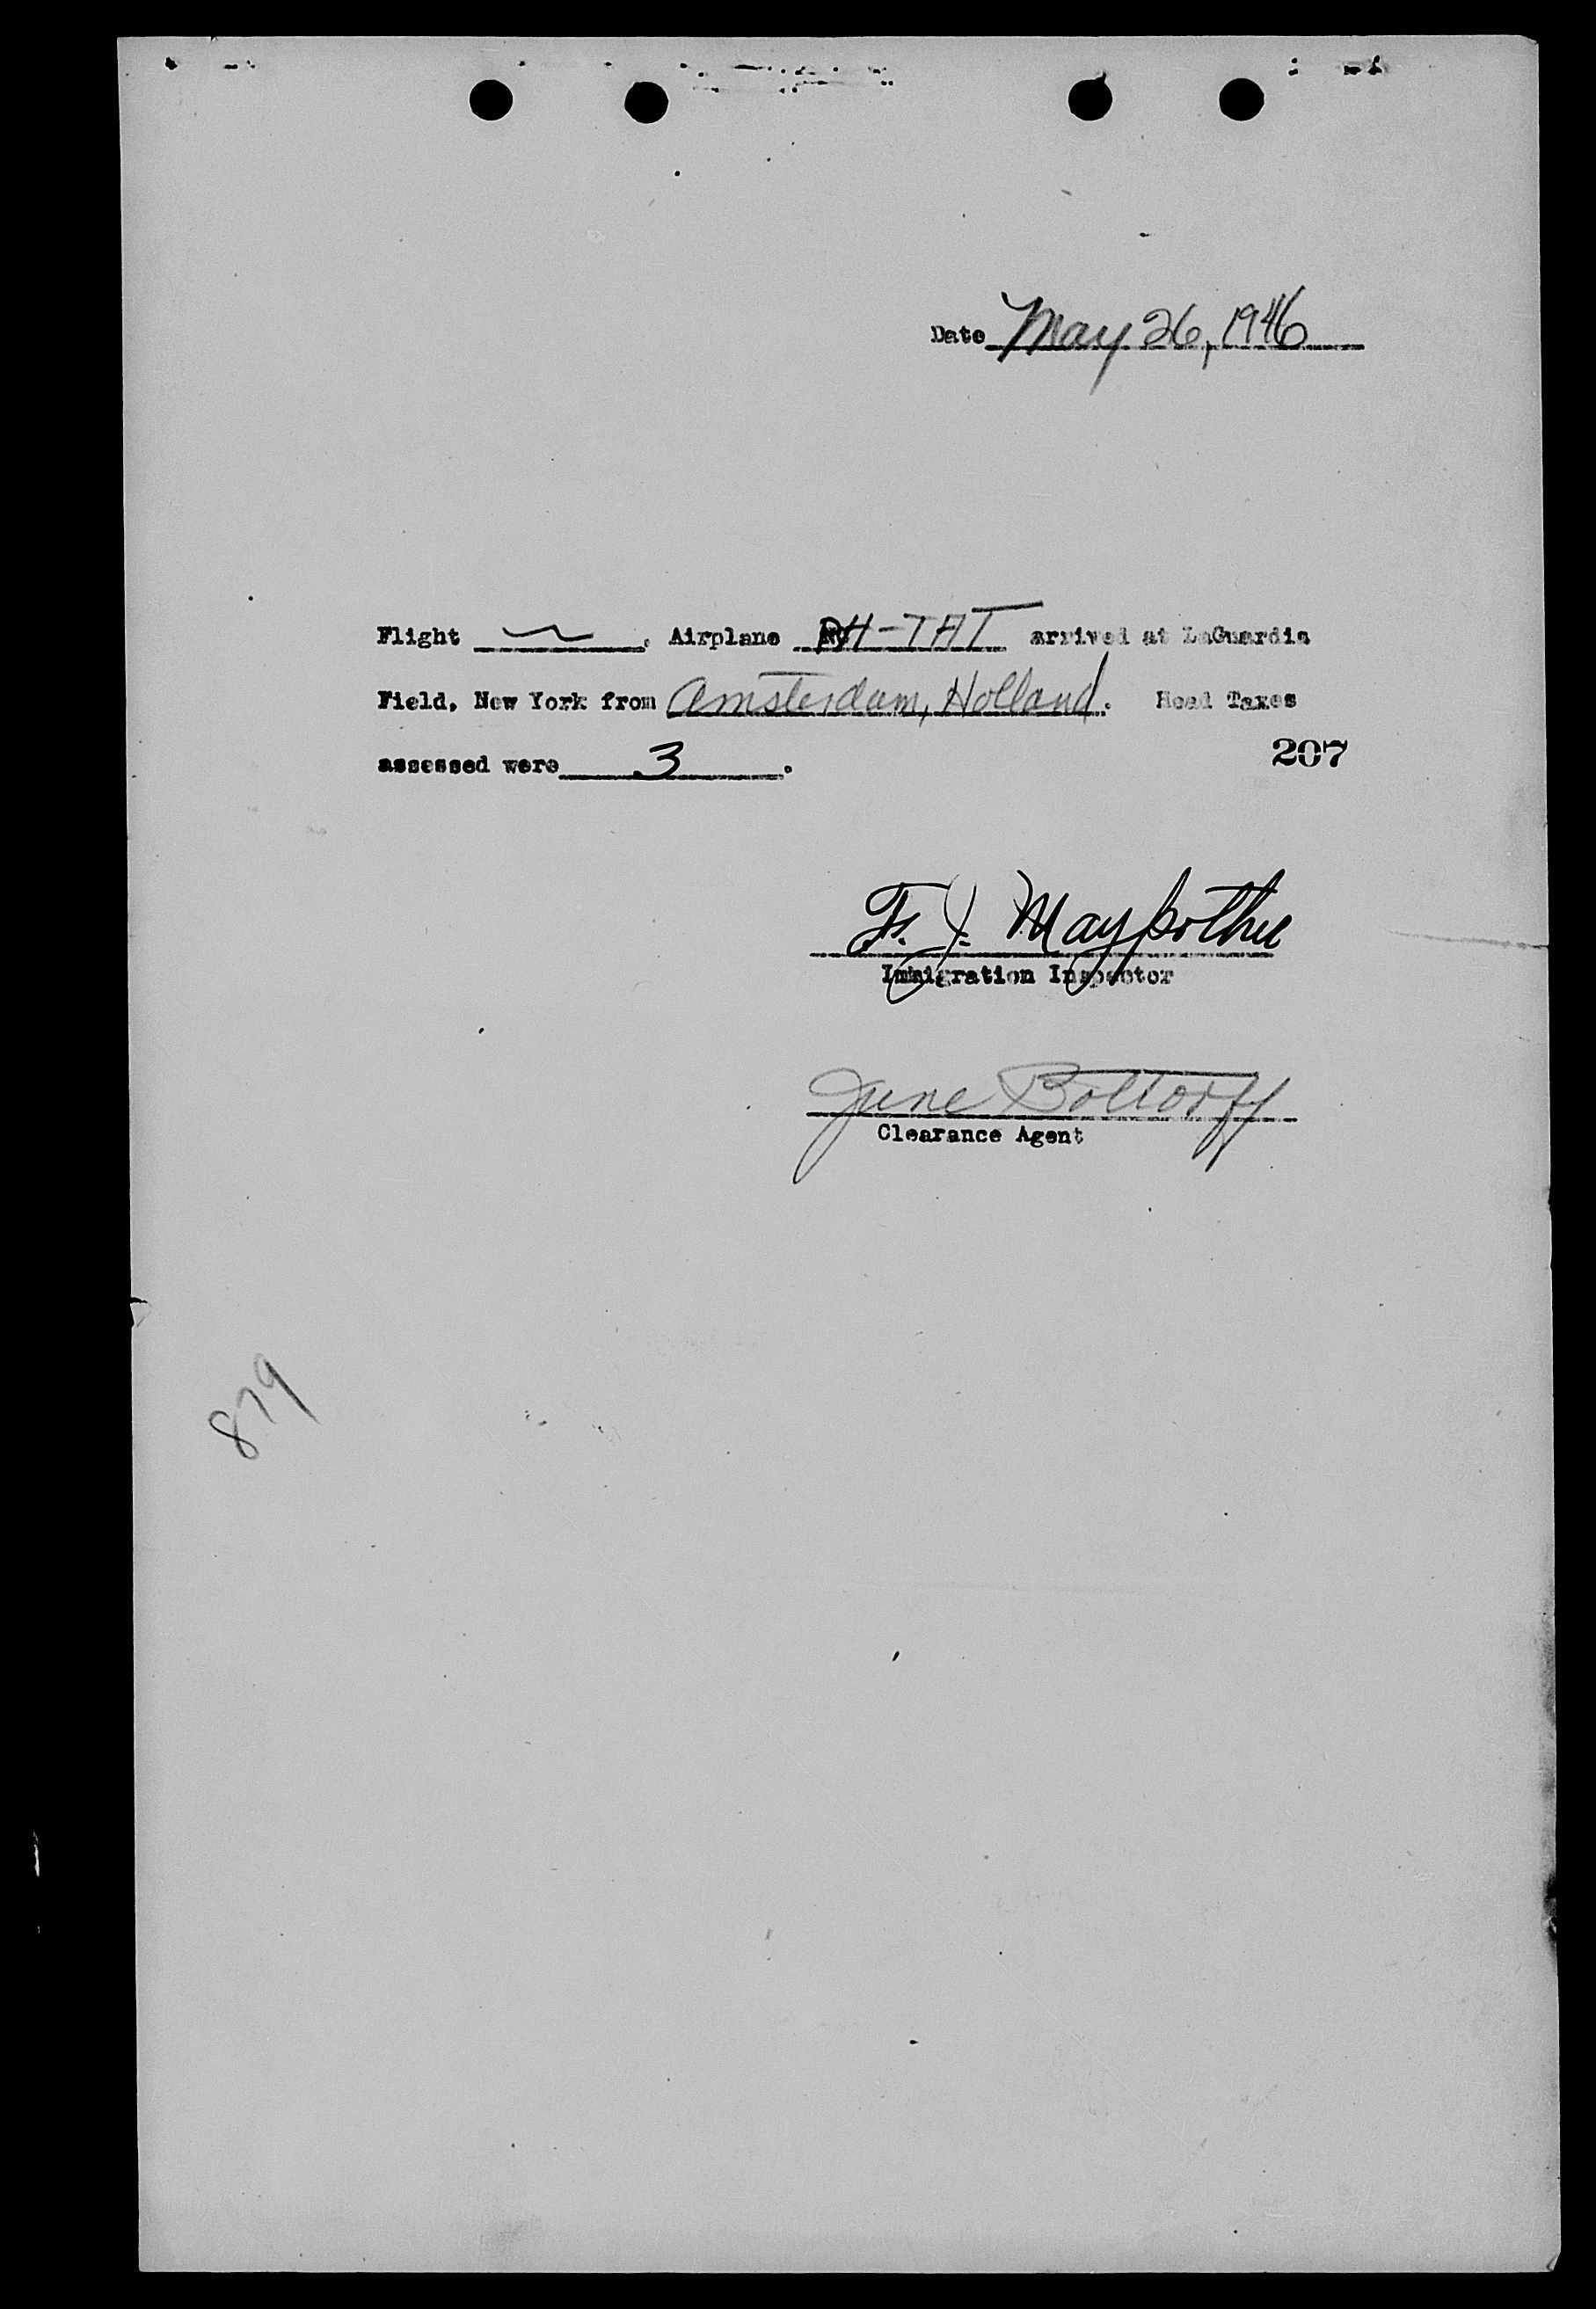 Date May 26, 1946
Flight , Airplane PH-TAT arrived at LaGuardia
Field, New York from Amsterdam, Holland. Head Taxes
assessed were 3 .
207
F. J.
Immigration Inspector
June Bottorff
Clearance Agent
879